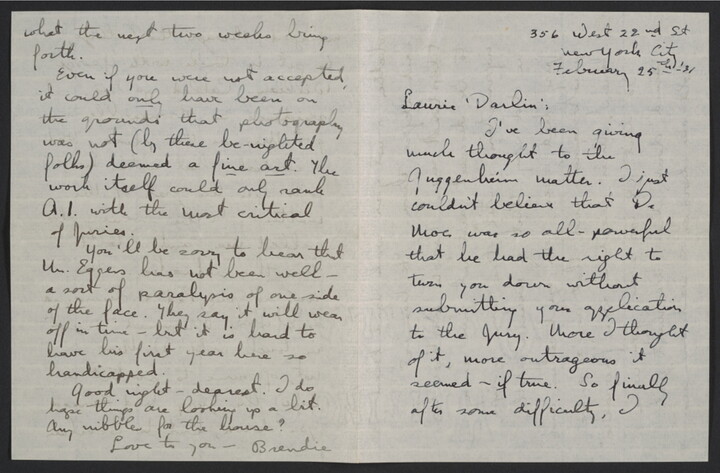 what the next two weeks bring
forth.
Even if you were not accepted,
it could only have been on
the grounds that photography
was not (by these be-nighted
folks) deemed a fine art. The
work itself could only rank
A.1. with the most critical
of Juries.
You'll be sorry to hear that
Mr. Eggers has not been well –
a sort of paralysis of one side
of the face. They say it will wear
off in time – but it is hard to
have his first year here so
handicapped.
Good night – dearest. I do
hope things are looking up a bit.
Any nibble for the house?
Love to you – Brendie
356 West 22nd St
New York City
February 25th '31
Laurie 'Darlin';
I've been giving
much thought to the
Guggenheim matter. I just
couldn't believe that Dr
Moe was so all-powerful
that he had the right to
turn you down without
submitting your application
to the Jury. More I thought
of it, more outrageous it
seemed – if true. So finally
after some difficulty, I